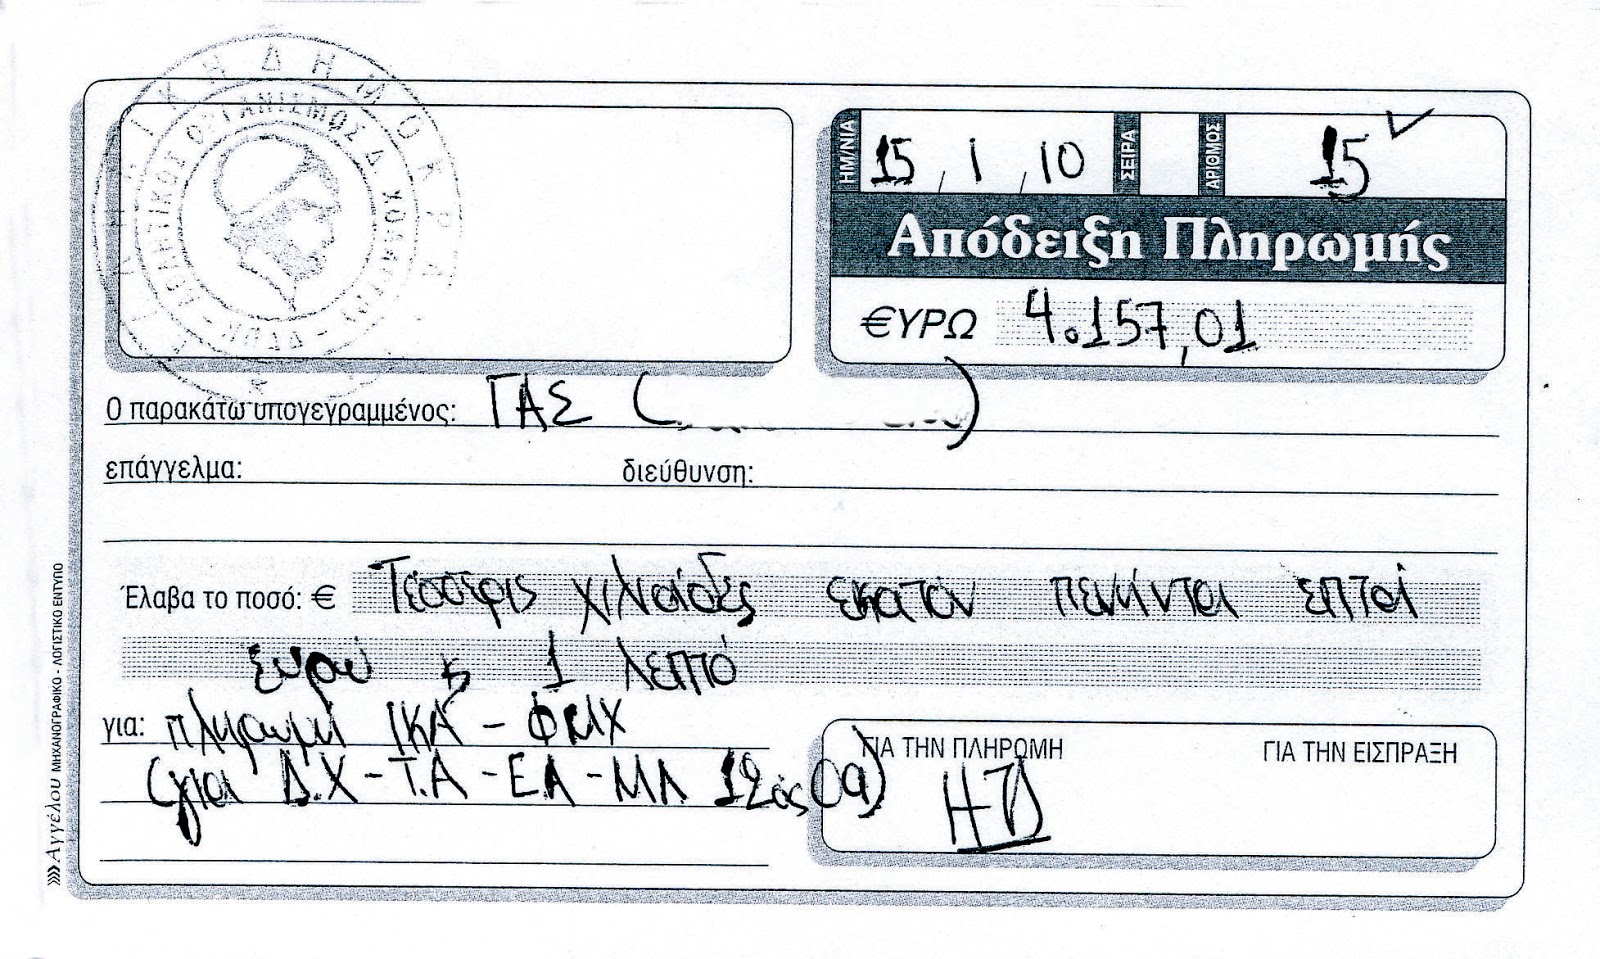 ΗΜ/ΝΙΑ 15 , 1 , 10 ΣΕΙΡΑ ΑΡΙΘΜΟΣ 15
Απόδειξη Πληρωμής
€ΥΡΩ 4.157,01
Ο παρακάτω υπογεγραμμένος: ΓΑΣ ( )
επάγγελμα: διεύθυνση:
Έλαβα το ποσό: € Τέσσερις χιλιάδες εκατόν πενήντα επτά
ευρώ κ 1 λεπτό
για: πληρωμή ΙΚΑ - ΦΜΧ
(για Δ.Χ - Τ.Α - ΕΑ - ΜΛ 12ος 09)
ΓΙΑ ΤΗΝ ΠΛΗΡΩΜΗ ΓΙΑ ΤΗΝ ΕΙΣΠΡΑΞΗ
»»Αγγέλου ΜΗΧΑΝΟΓΡΑΦΙΚΟ - ΛΟΓΙΣΤΙΚΟ ΕΝΤΥΠΟ